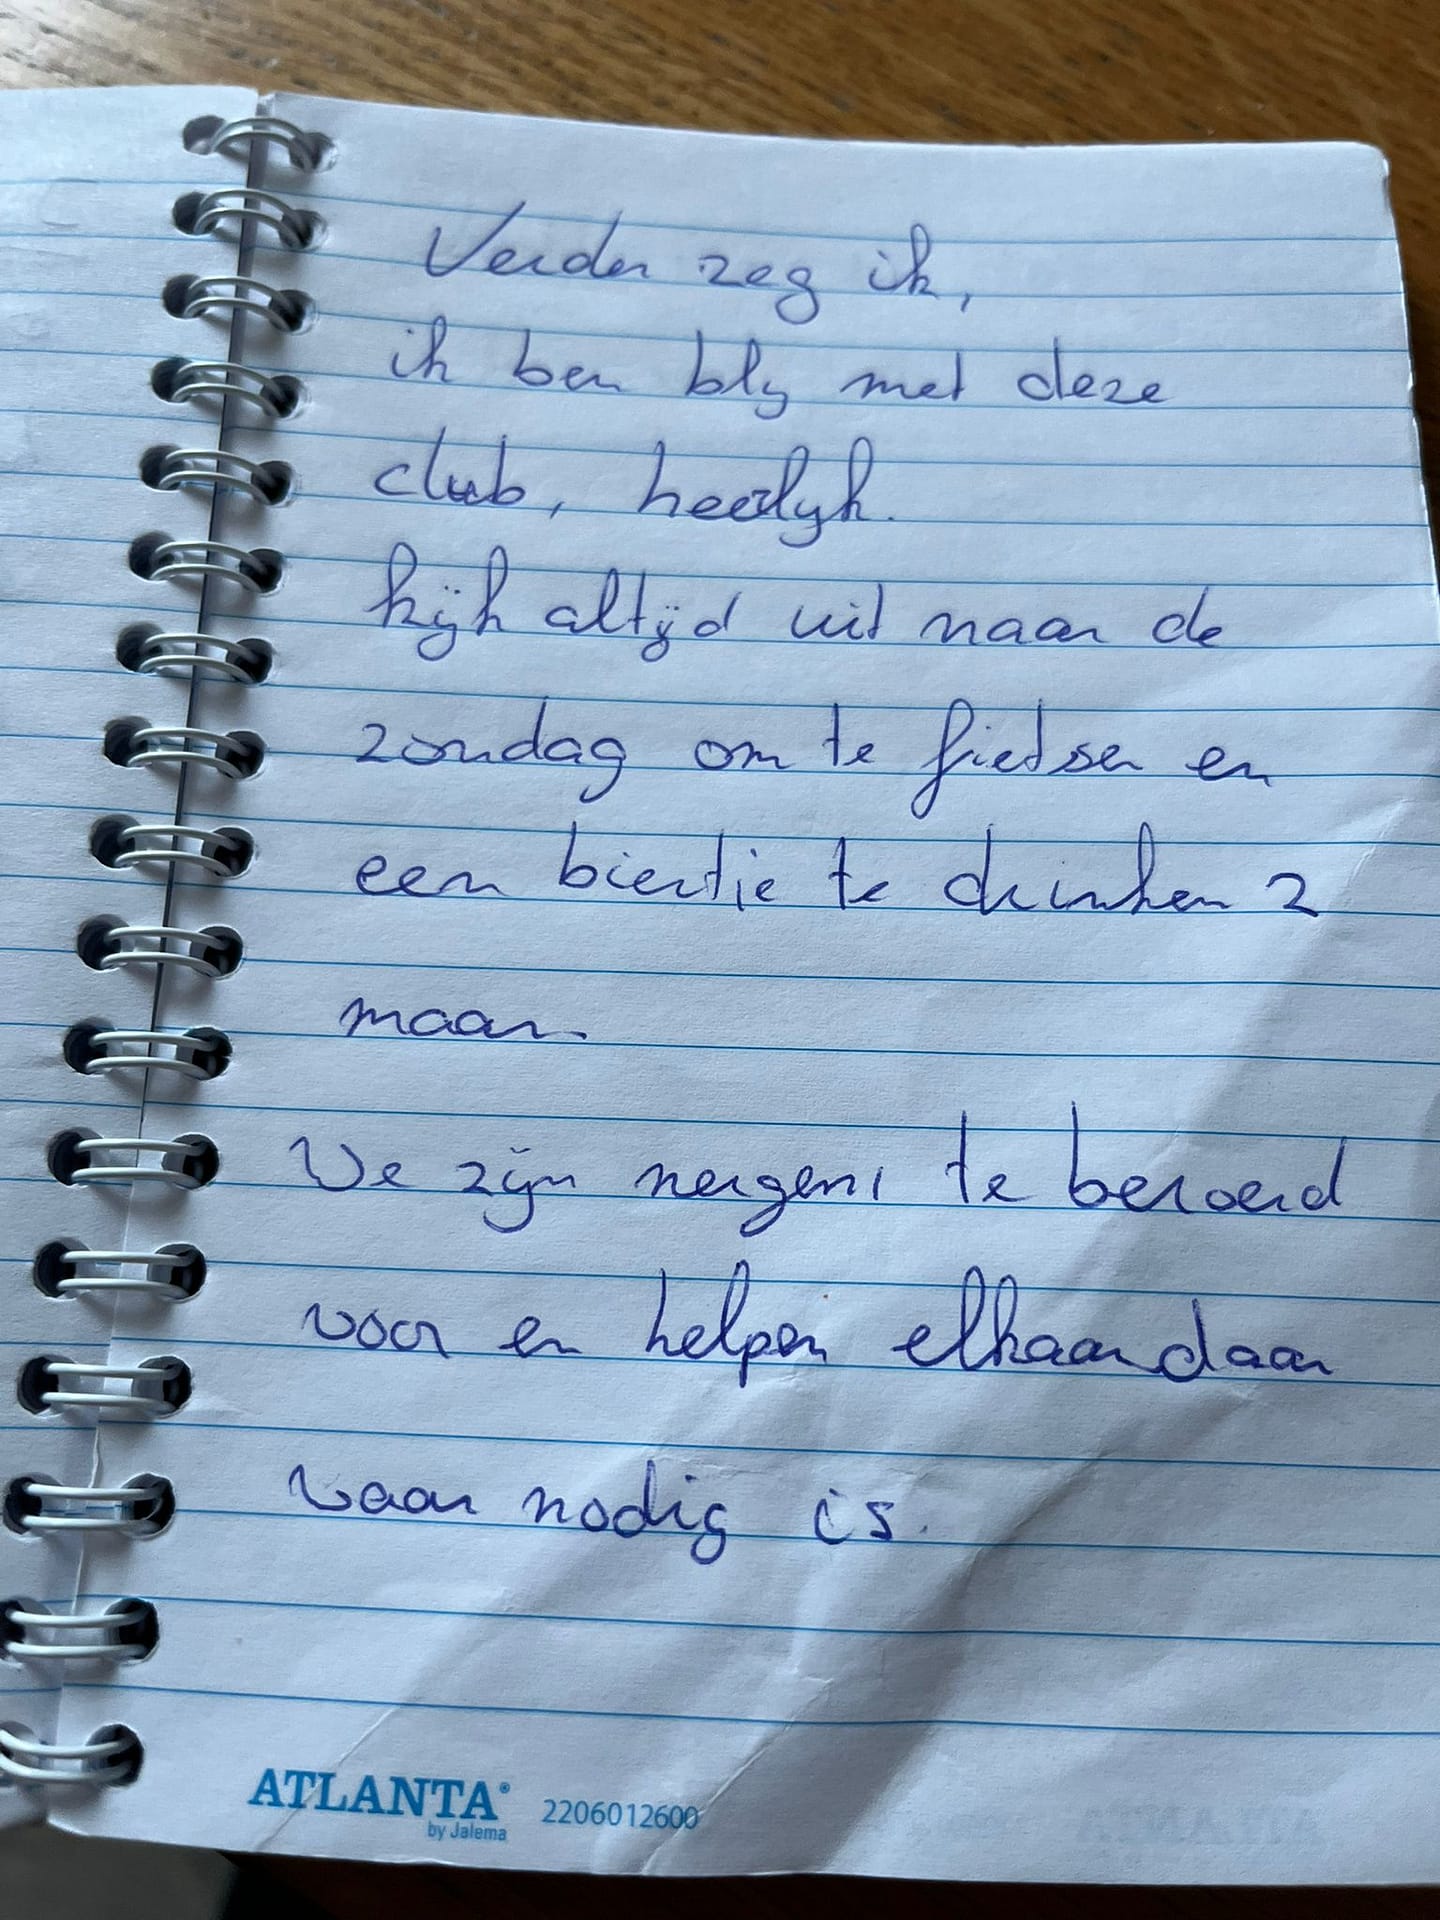 Verder zeg ik,
ik ben bly met deze
club, heerlyk.
kijk altijd uit naar de
zondag om te fietsen en
een biertie te drinken 2
maar.
We zijn nergens te beroerd
voor en helpen elkaar daar
waar nodig is.
ATLANTA® 2206012600
by Jalema